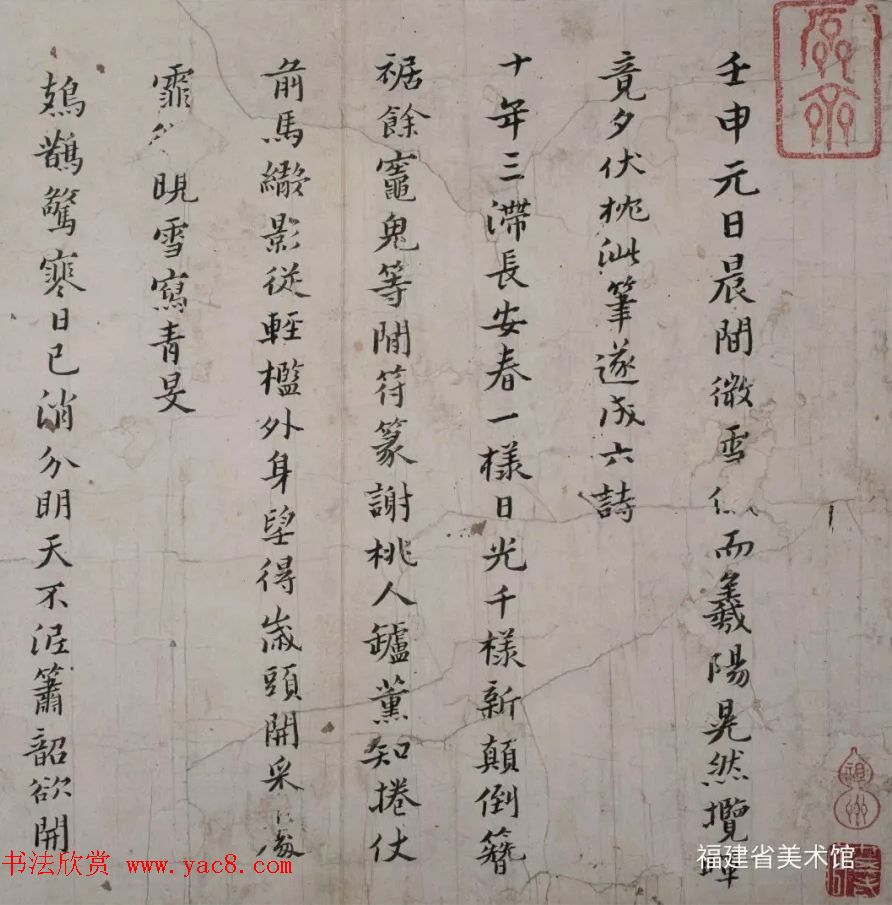 壬申元日晨間微雪而羲陽晃然攬
竟夕伏枕泚筆遂成六詩
十年三滯長安春一樣日光千樣新顛倒簪
裾餘竈鬼等閒符篆謝桃人鑪薰知捲仗
前馬纔影從輕檻外身望得歲頭開采
霏晛雪寫青旻
鳷鵲驚寒日已消分明天不泥簫韶欲開
書法欣赏 www.yac8.com
福建省美术馆